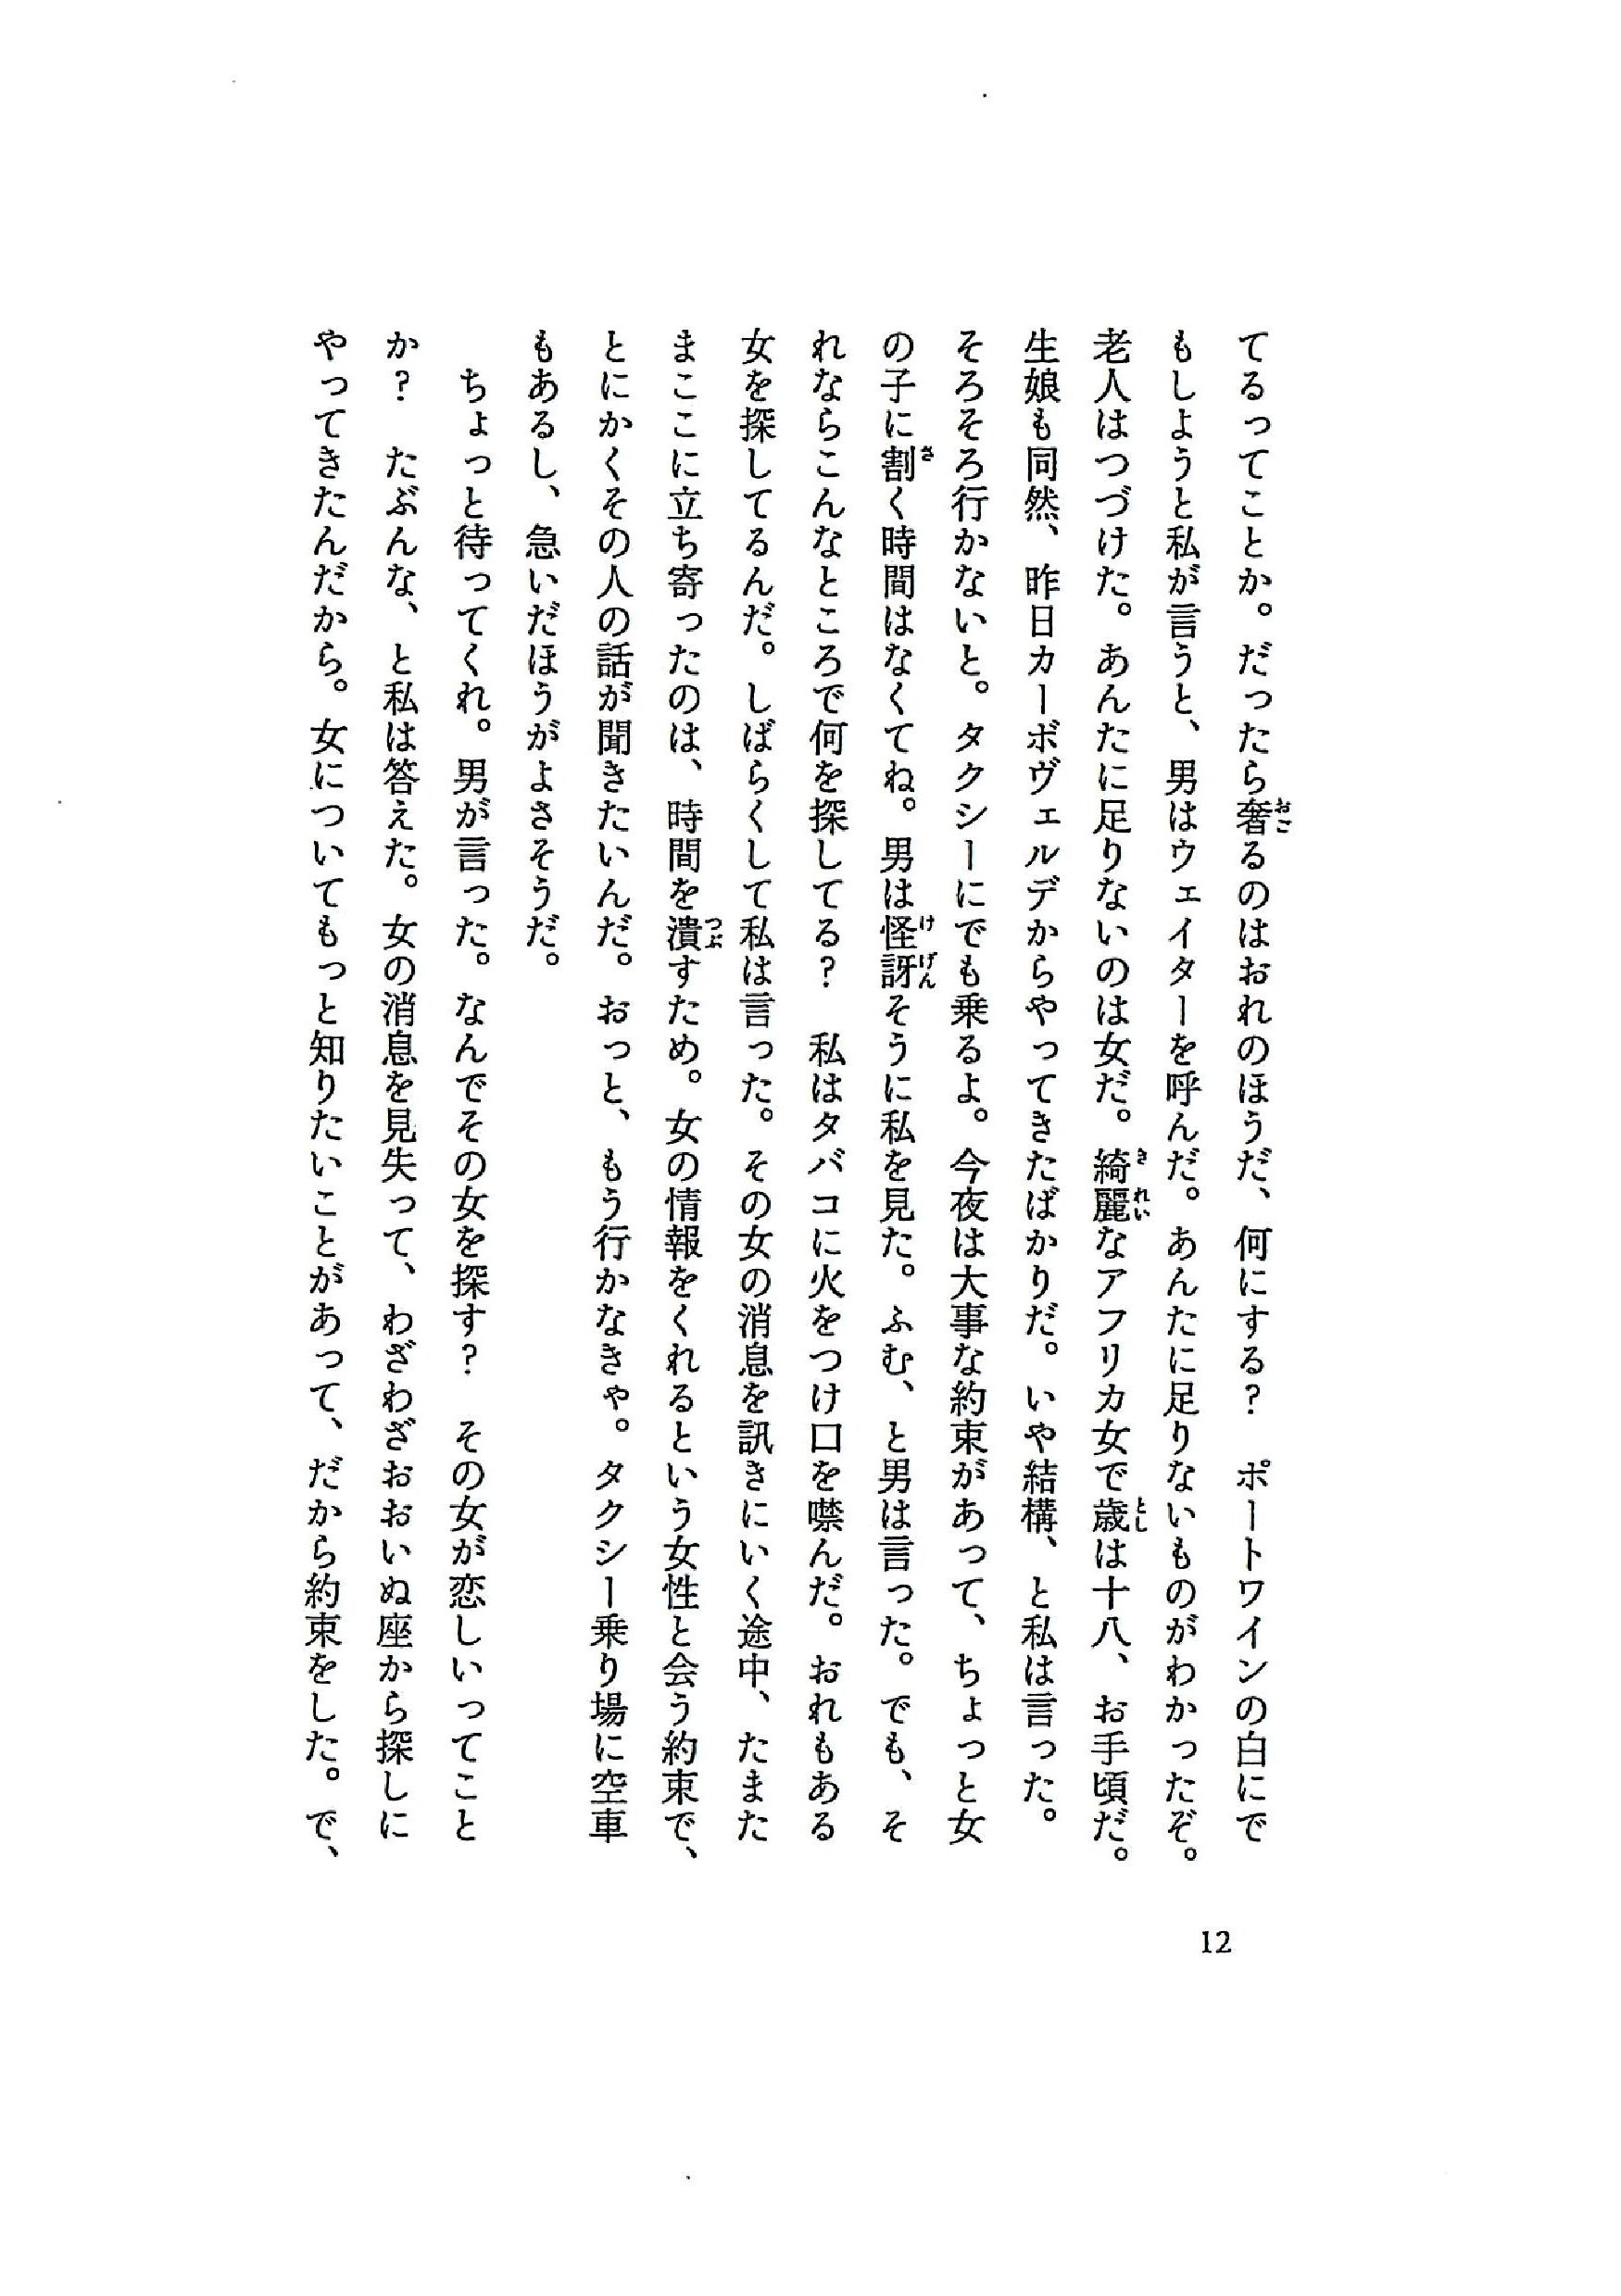 てるってことか。だったら奢るのはおれのほうだ、何にする？　ポートワインの白にで
もしようと私が言うと、男はウェイターを呼んだ。あんたに足りないものがわかったぞ。
老人はつづけた。あんたに足りないのは女だ。綺麗なアフリカ女で歳は十八、お手頃だ。
生娘も同然、昨日カーボヴェルデからやってきたばかりだ。いや結構、と私は言った。
そろそろ行かないと。タクシーにでも乗るよ。今夜は大事な約束があって、ちょっと女
の子に割く時間はなくてね。男は怪訝そうに私を見た。ふむ、と男は言った。でも、そ
れならこんなところで何を探してる？　私はタバコに火をつけ口を噤んだ。おれもある
女を探してるんだ。しばらくして私は言った。その女の消息を訊きにいく途中、たまた
まここに立ち寄ったのは、時間を潰すため。女の情報をくれるという女性と会う約束で、
とにかくその人の話が聞きたいんだ。おっと、もう行かなきゃ。タクシー乗り場に空車
もあるし、急いだほうがよさそうだ。
　ちょっと待ってくれ。男が言った。なんでその女を探す？　その女が恋しいってこと
か？　たぶんな、と私は答えた。女の消息を見失って、わざわざおおいぬ座から探しに
やってきたんだから。女についてもっと知りたいことがあって、だから約束をした。で、
12